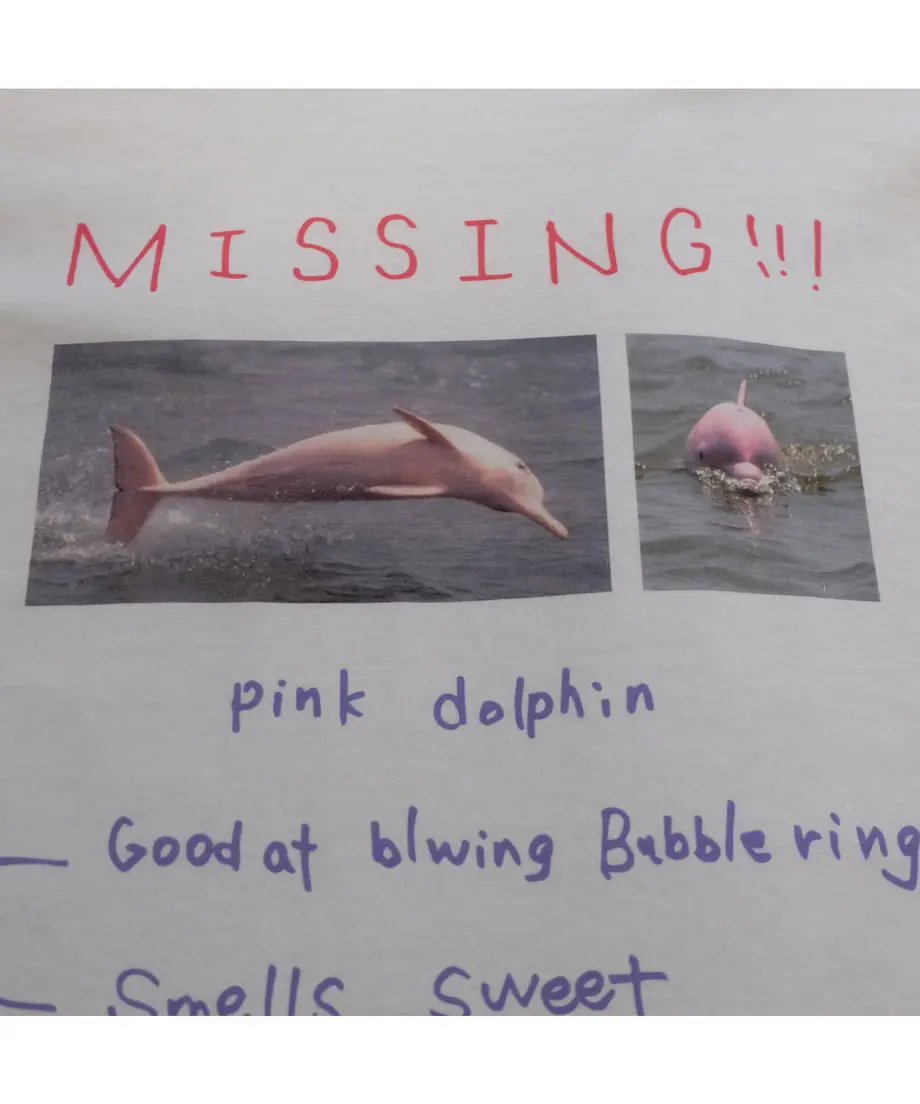 MISSING!!!
pink dolphin
— Good at blwing Bubble ring
— Smells sweet